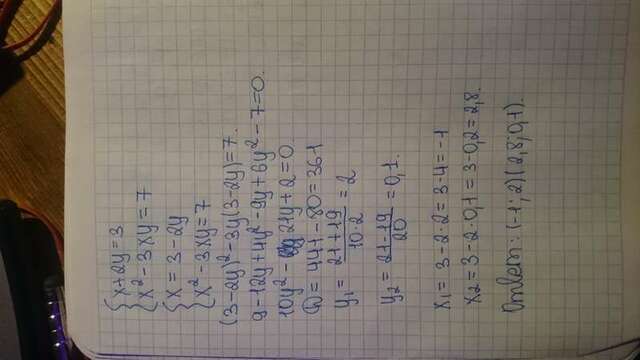 {x+2y=3
{x²-3xy=7
{x=3-2y
{x²-3xy=7
(3-2y)²-3y(3-2y)=7.
9-12y+4y²-9y+6y²-7=0.
10y²-21y+2=0
D=441-80=361
y₁=(21+19)/(10·2)=2
y₂=(21-19)/20=0,1.
x₁=3-2·2=3-4=-1
x₂=3-2·0,1=3-0,2=2,8.
Ответ: (-1;2)(2,8;0,1).